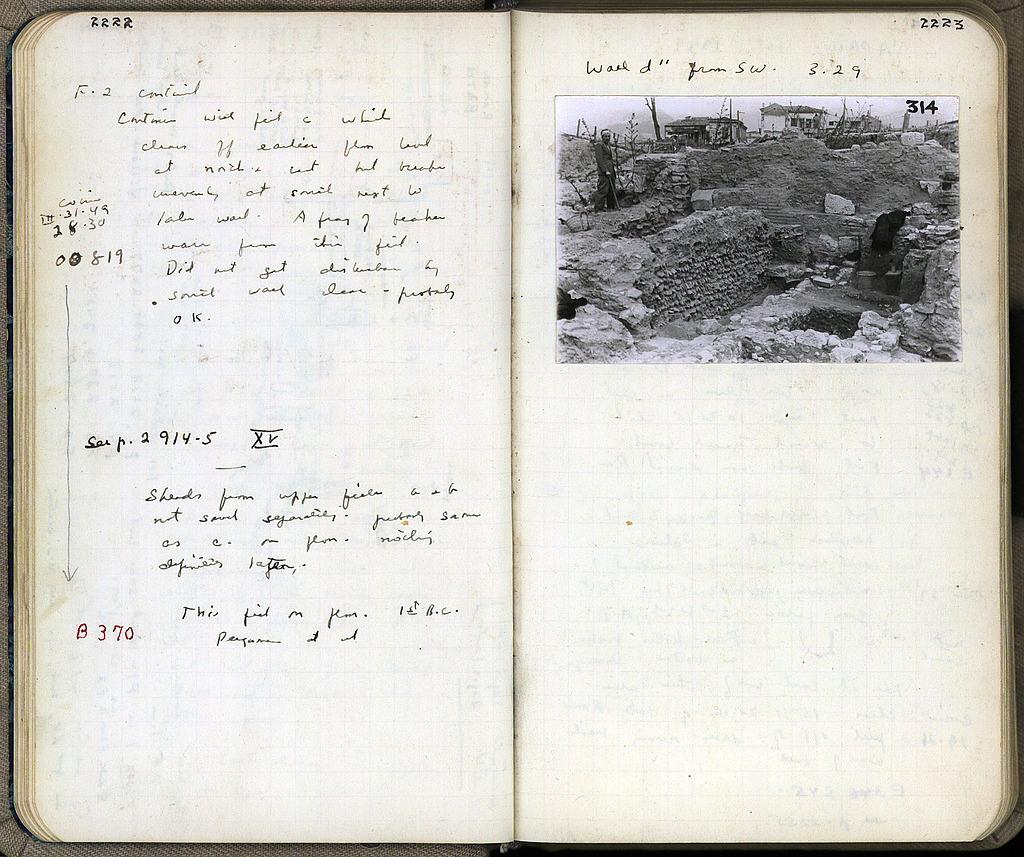 2222
F. 2 contin'd
Continue with fill c which
clears off earlier floor level
at north & east but breaks
unevenly at south next to
later wall. A frag of
ware from this fill.
Did not get disturbance by
south wall clear - probably
OK.
coins
III.31.49
28.30
00819
See p. 2914-5 XV
Sherds from upper fills a & b
not saved separately. probably same
as c. on floor. nothing
definitely later.
This fill on floor. 1st B.C.
Pergamene et al
B 370
2223
Wall d'' from SW. 3.29
314